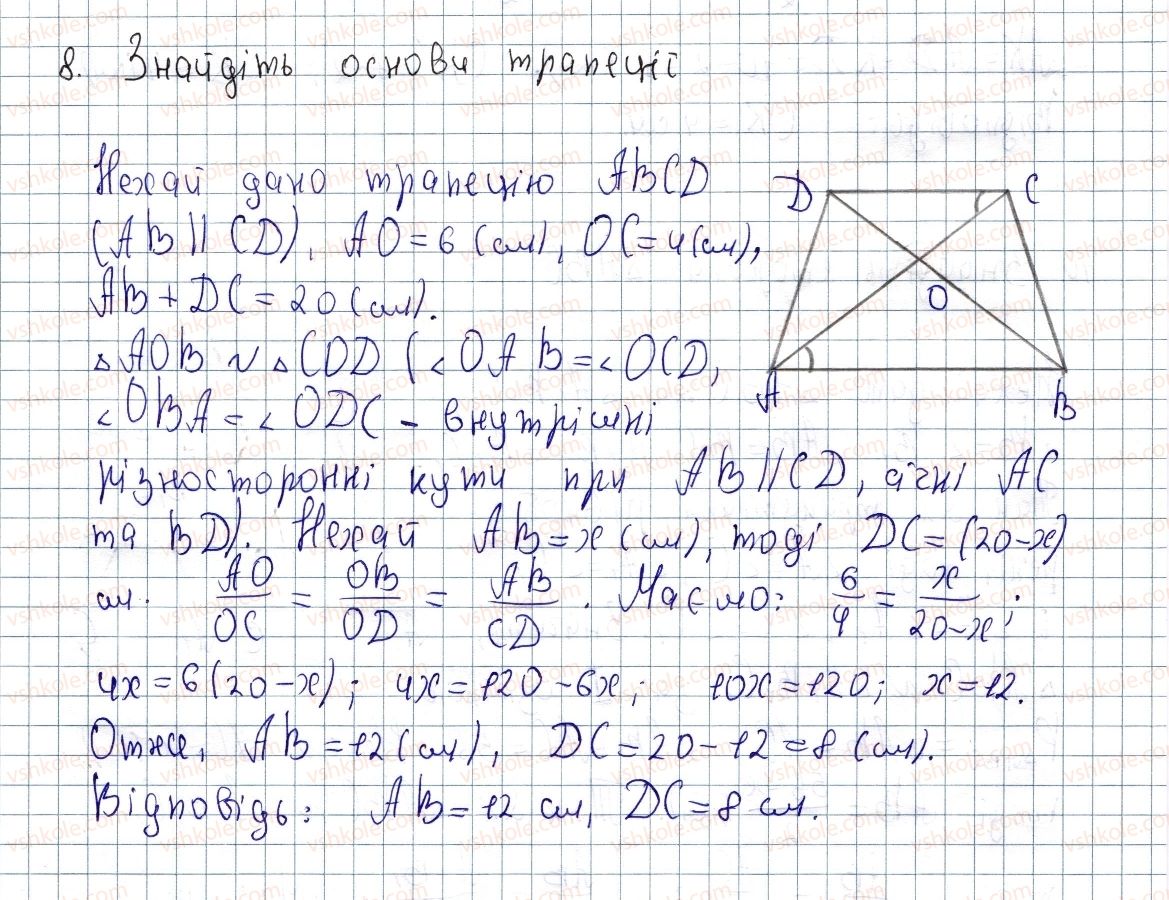 8. Знайдіть основи трапеції
Нехай дано трапецію ABCD
(AB || CD), AO = 6 (см), OC = 4 (см),
AB + DC = 20 (см).
△AOB ~ △COD (∠OAB = ∠OCD,
∠OBA = ∠ODC - внутрішні
різносторонні кути при AB || CD, січні AC
та BD). Нехай AB = x (см), тоді DC = (20 - x)
см. AO/OC = OB/OD = AB/CD. Маємо: 6/4 = x/(20-x);
4x = 6(20 - x); 4x = 120 - 6x; 10x = 120; x = 12.
Отже, AB = 12 (см), DC = 20 - 12 = 8 (см).
Відповідь: AB = 12 см, DC = 8 см.
D C
O
A B
vshkole.com